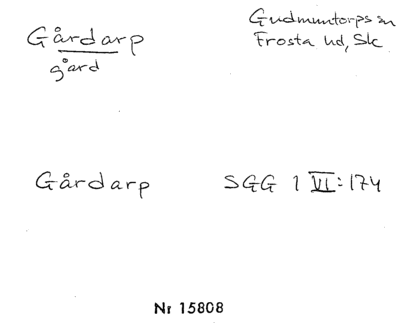 Gårdarp
gård
Gudmuntorps sn
Frosta hd, Sk
Gårdarp
SGG 1 VI:174
Nr 15808